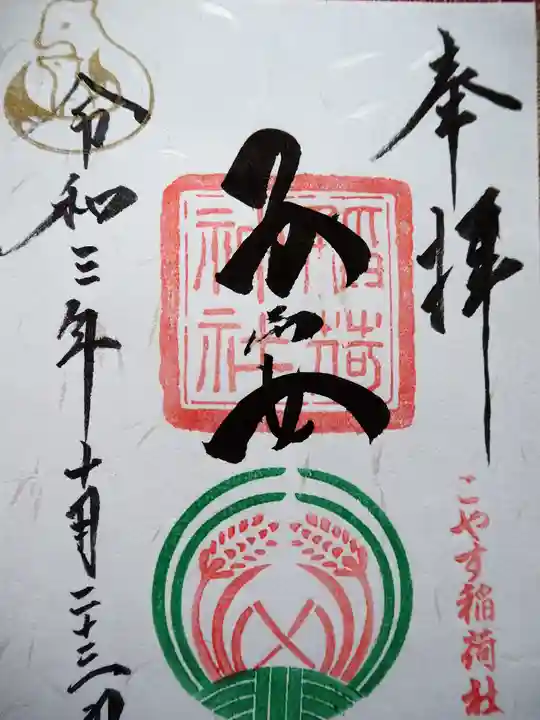 奉拝
こやす稲荷社
稲荷
神社
令和三年十月二十三日